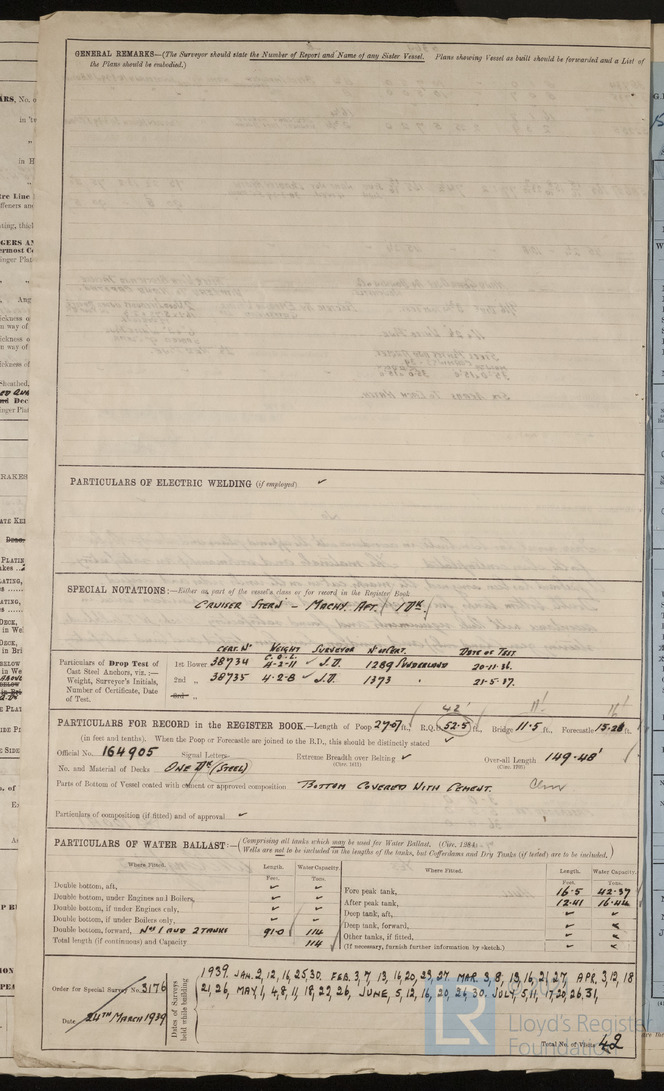 GENERAL REMARKS—(The Surveyor should state the Number of Report and Name of any Sister Vessel. Plans showing Vessel as built should be forwarded and a List of
the Plans should be embodied.)
PARTICULARS OF ELECTRIC WELDING (if employed) ✓
SPECIAL NOTATIONS:—Either as part of the vessel's class or for record in the Register Book
CRUISER STERN - MACHY AFT. / 1 DK /
CERT. No WEIGHT SURVEYOR No OF CERT. DATE OF TEST
Particulars of Drop Test of
Cast Steel Anchors, viz.:—
Weight, Surveyor's Initials,
Number of Certificate, Date
of Test.
1st Bower 38734 4-2-11 ✓ J.D. 1289 SUNDERLAND 20-11-36.
2nd „ 38735 4-2-8 ✓ J.D. 1373 " 21-5-37.
3rd „
42' 11' 16'
PARTICULARS FOR RECORD in the REGISTER BOOK.—Length of Poop 27·07 ft., R.Q.D. 52·5 ft., Bridge 11·5 ft., Forecastle ft.
(in feet and tenths). When the Poop or Forecastle are joined to the B.D., this should be distinctly stated ✓
Official No. 164905 Signal Letters Extreme Breadth over Belting ✓ Over-all Length 149·48'
No. and Material of Decks ONE DK (STEEL)
Parts of Bottom of Vessel coated with cement or approved composition BOTTOM COVERED WITH CEMENT.
Particulars of composition (if fitted) and of approval ✓
PARTICULARS OF WATER BALLAST:—(Comprising all tanks which may be used for Water Ballast. (Circ. 1284)
Wells are not to be included in the lengths of the tanks, but Cofferdams and Dry Tanks (if tested) are to be included.)
Where Fitted. Length. Water Capacity.
Feet. Tons.
Double bottom, aft, ✓ ✓
Double bottom, under Engines and Boilers, ✓ ✓
Double bottom, if under Engines only, ✓ ✓
Double bottom, if under Boilers only, ✓ ✓
Double bottom, forward, Nos 1 AND 2 TANKS 91·0 114
Total length (if continuous) and Capacity 114
Where Fitted. Length. Water Capacity.
Feet. Tons.
Fore peak tank, 16·5 42·37
After peak tank, 12·41 16·44
Deep tank, aft, ✓
Deep tank, forward, ✓
Other tanks, if fitted, ✓
(If necessary, furnish further information by sketch.)
Order for Special Survey No. 3176
Date 24TH MARCH 1939
Dates of Surveys
held while building
1939. JAN. 2, 12, 16, 25, 30. FEB. 3, 7, 13, 16, 20, 23, 27. MAR. 3, 8, 13, 16, 21, 27, APR. 3, 12, 18
21, 26, MAY, 1, 4, 8, 11, 18, 22, 26, JUNE, 5, 12, 16, 20, 26, 30. JULY, 5, 11, 17, 20, 26, 31,
Total No. of Visits 42
LR
Lloyd's Register
Foundation